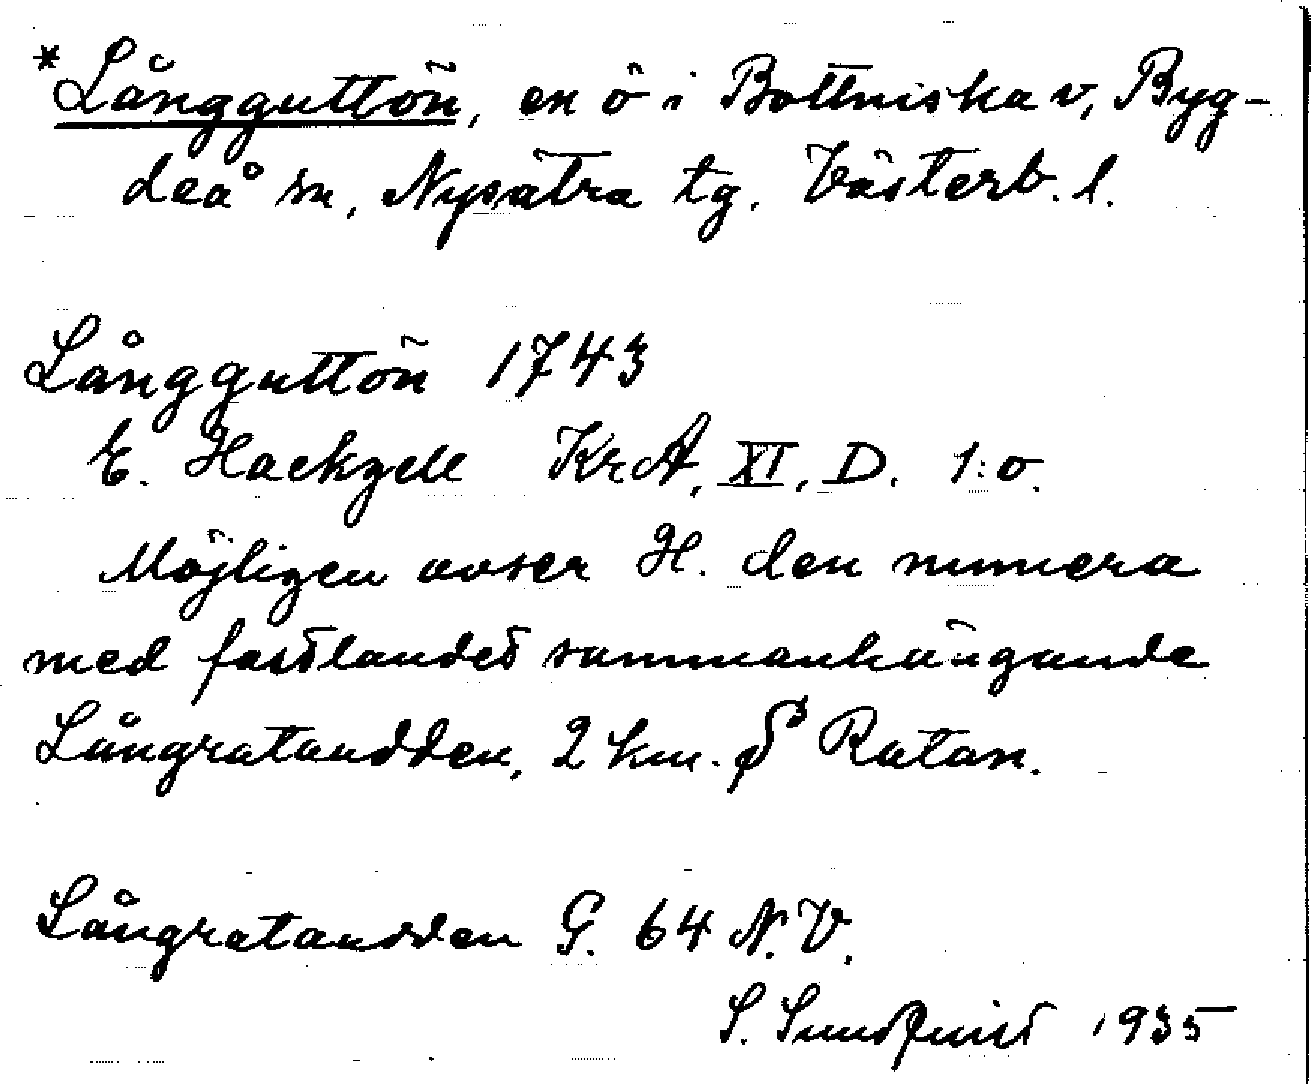 *Långguttön, en ö i Bottniska v, Byg-
deå sn, Nysätra tg. Västerb. l.
Långguttön 1743
E. Hackzell KrA, XI, D. 1:o.
Möjligen avser H. den numera
med fastlandet sammanhängande
Långratandden, 2 km. S Ratan.
Långratandden G. 64 N.V.
S. Sundqvist 1935